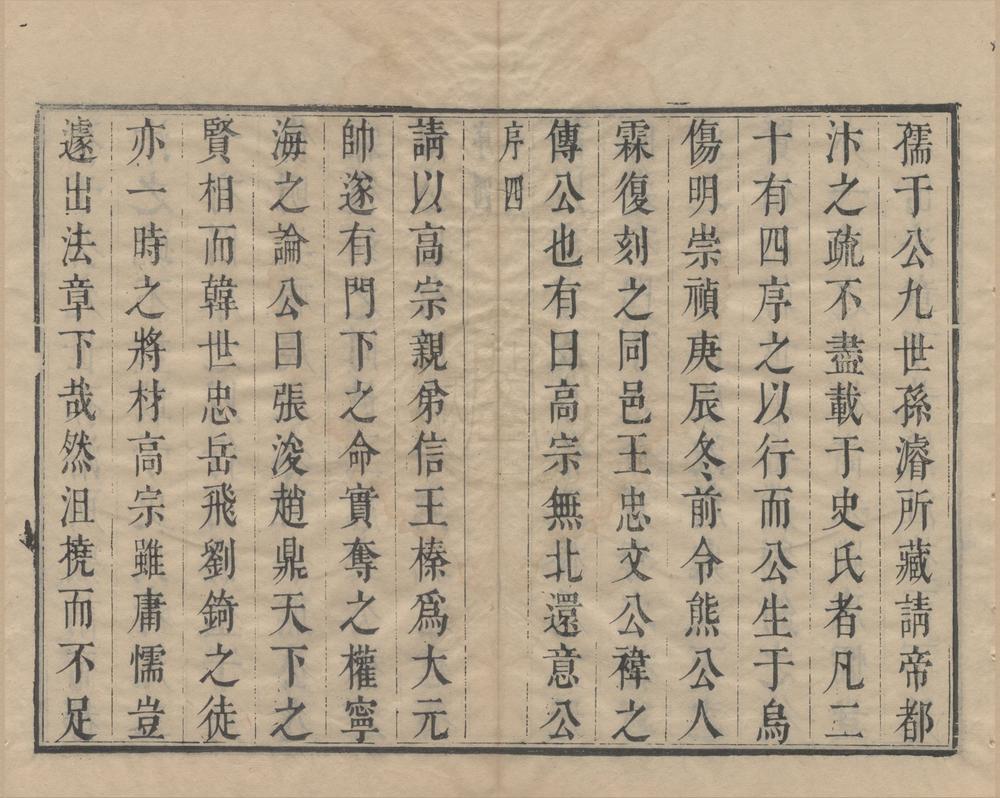 孺于公九世孫濬所藏請帝都
汴之疏不盡載于史氏者凡二
十有四序之以行而公生于烏
傷明崇禎庚辰冬前令熊公人
霖復刻之同邑王忠文公褘之
傳公也有曰高宗無北還意公
序四
請以高宗親弟信王榛爲大元
帥遂有門下之命實奪之權寧
海之論公曰張浚趙鼎天下之
賢相而韓世忠岳飛劉錡之徒
亦一時之將材高宗雖庸懦豈
遽出法章下哉然沮撓而不足